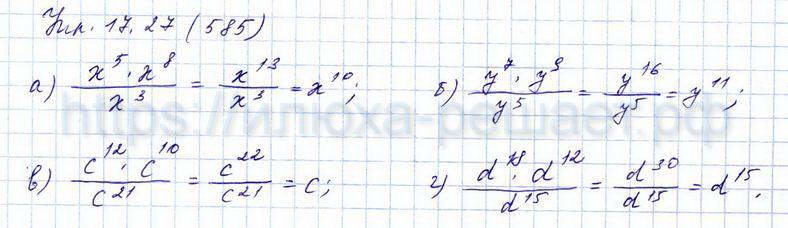 Упр. 17.27 (585)
а) x⁵ · x⁸ / x³ = x¹³ / x³ = x¹⁰; б) y⁷ · y⁹ / y⁵ = y¹⁶ / y⁵ = y¹¹;
в) c¹² · c¹⁰ / c²¹ = c²² / c²¹ = c; г) d¹⁸ · d¹² / d¹⁵ = d³⁰ / d¹⁵ = d¹⁵.
https://илюха-решает.рф